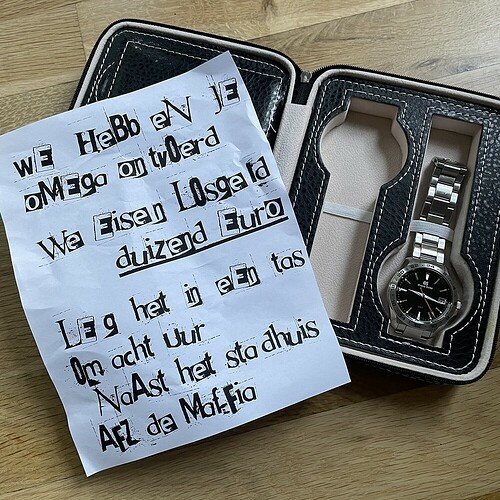 wE HeBb eN jE
oMEga ontvOerd
We Eisen Losgeld
duizend Euro
LEg het in eEn tas
Om acht uur
NaAst het stadhuis
AFZ de MafFia